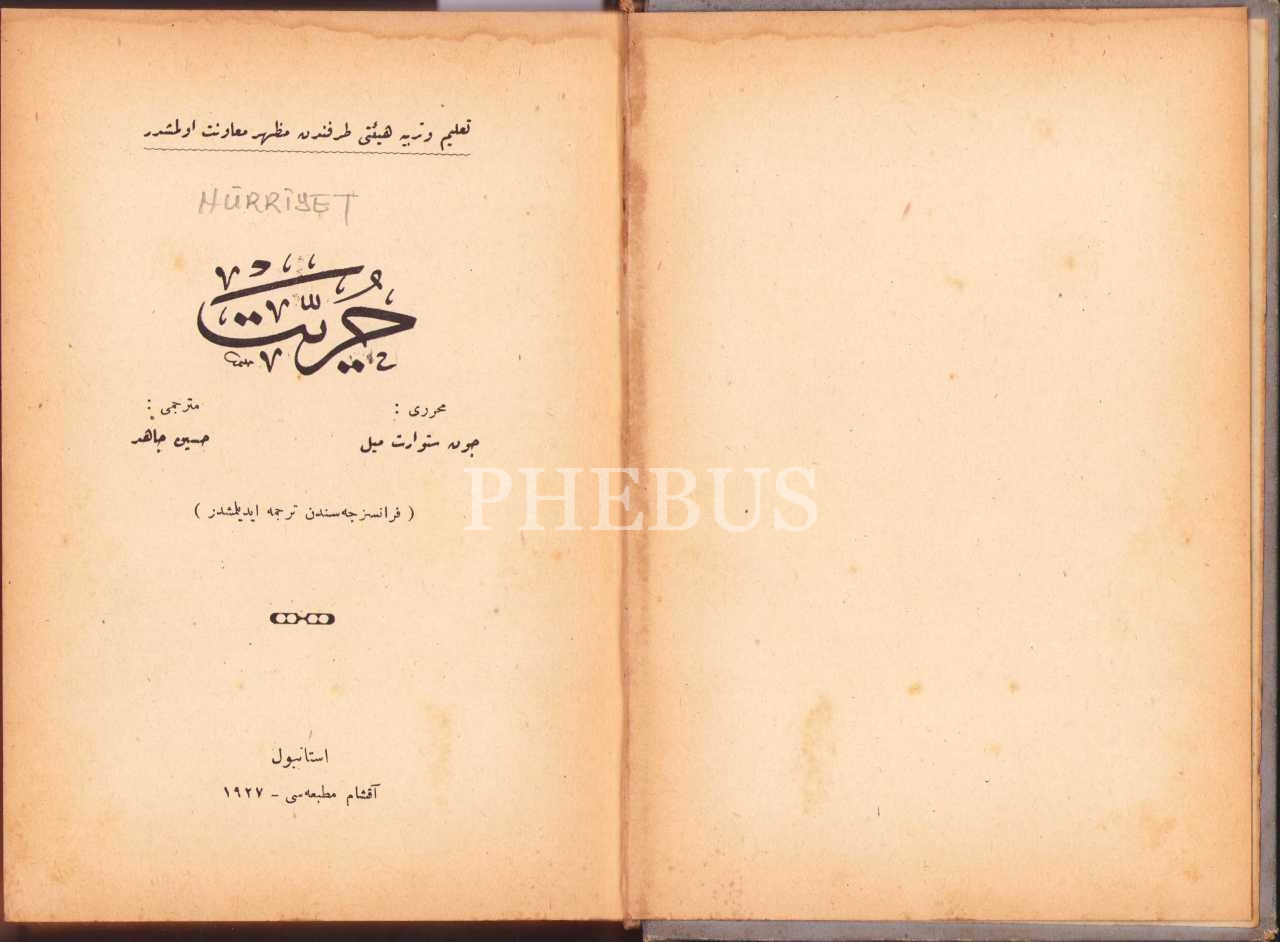 تعليم وتربيه هيئتى طرفندن مظهر معاونت اولمشدر
HÜRRİYET
حُرِيَّت
محررى :
جون ستوارت ميل
مترجمى :
حسين جاهد
( فرانسزجه‌سندن ترجمه ايديلمشدر )
PHEBUS
استانبول
آقشام مطبعه‌سى - ١٩٢٧